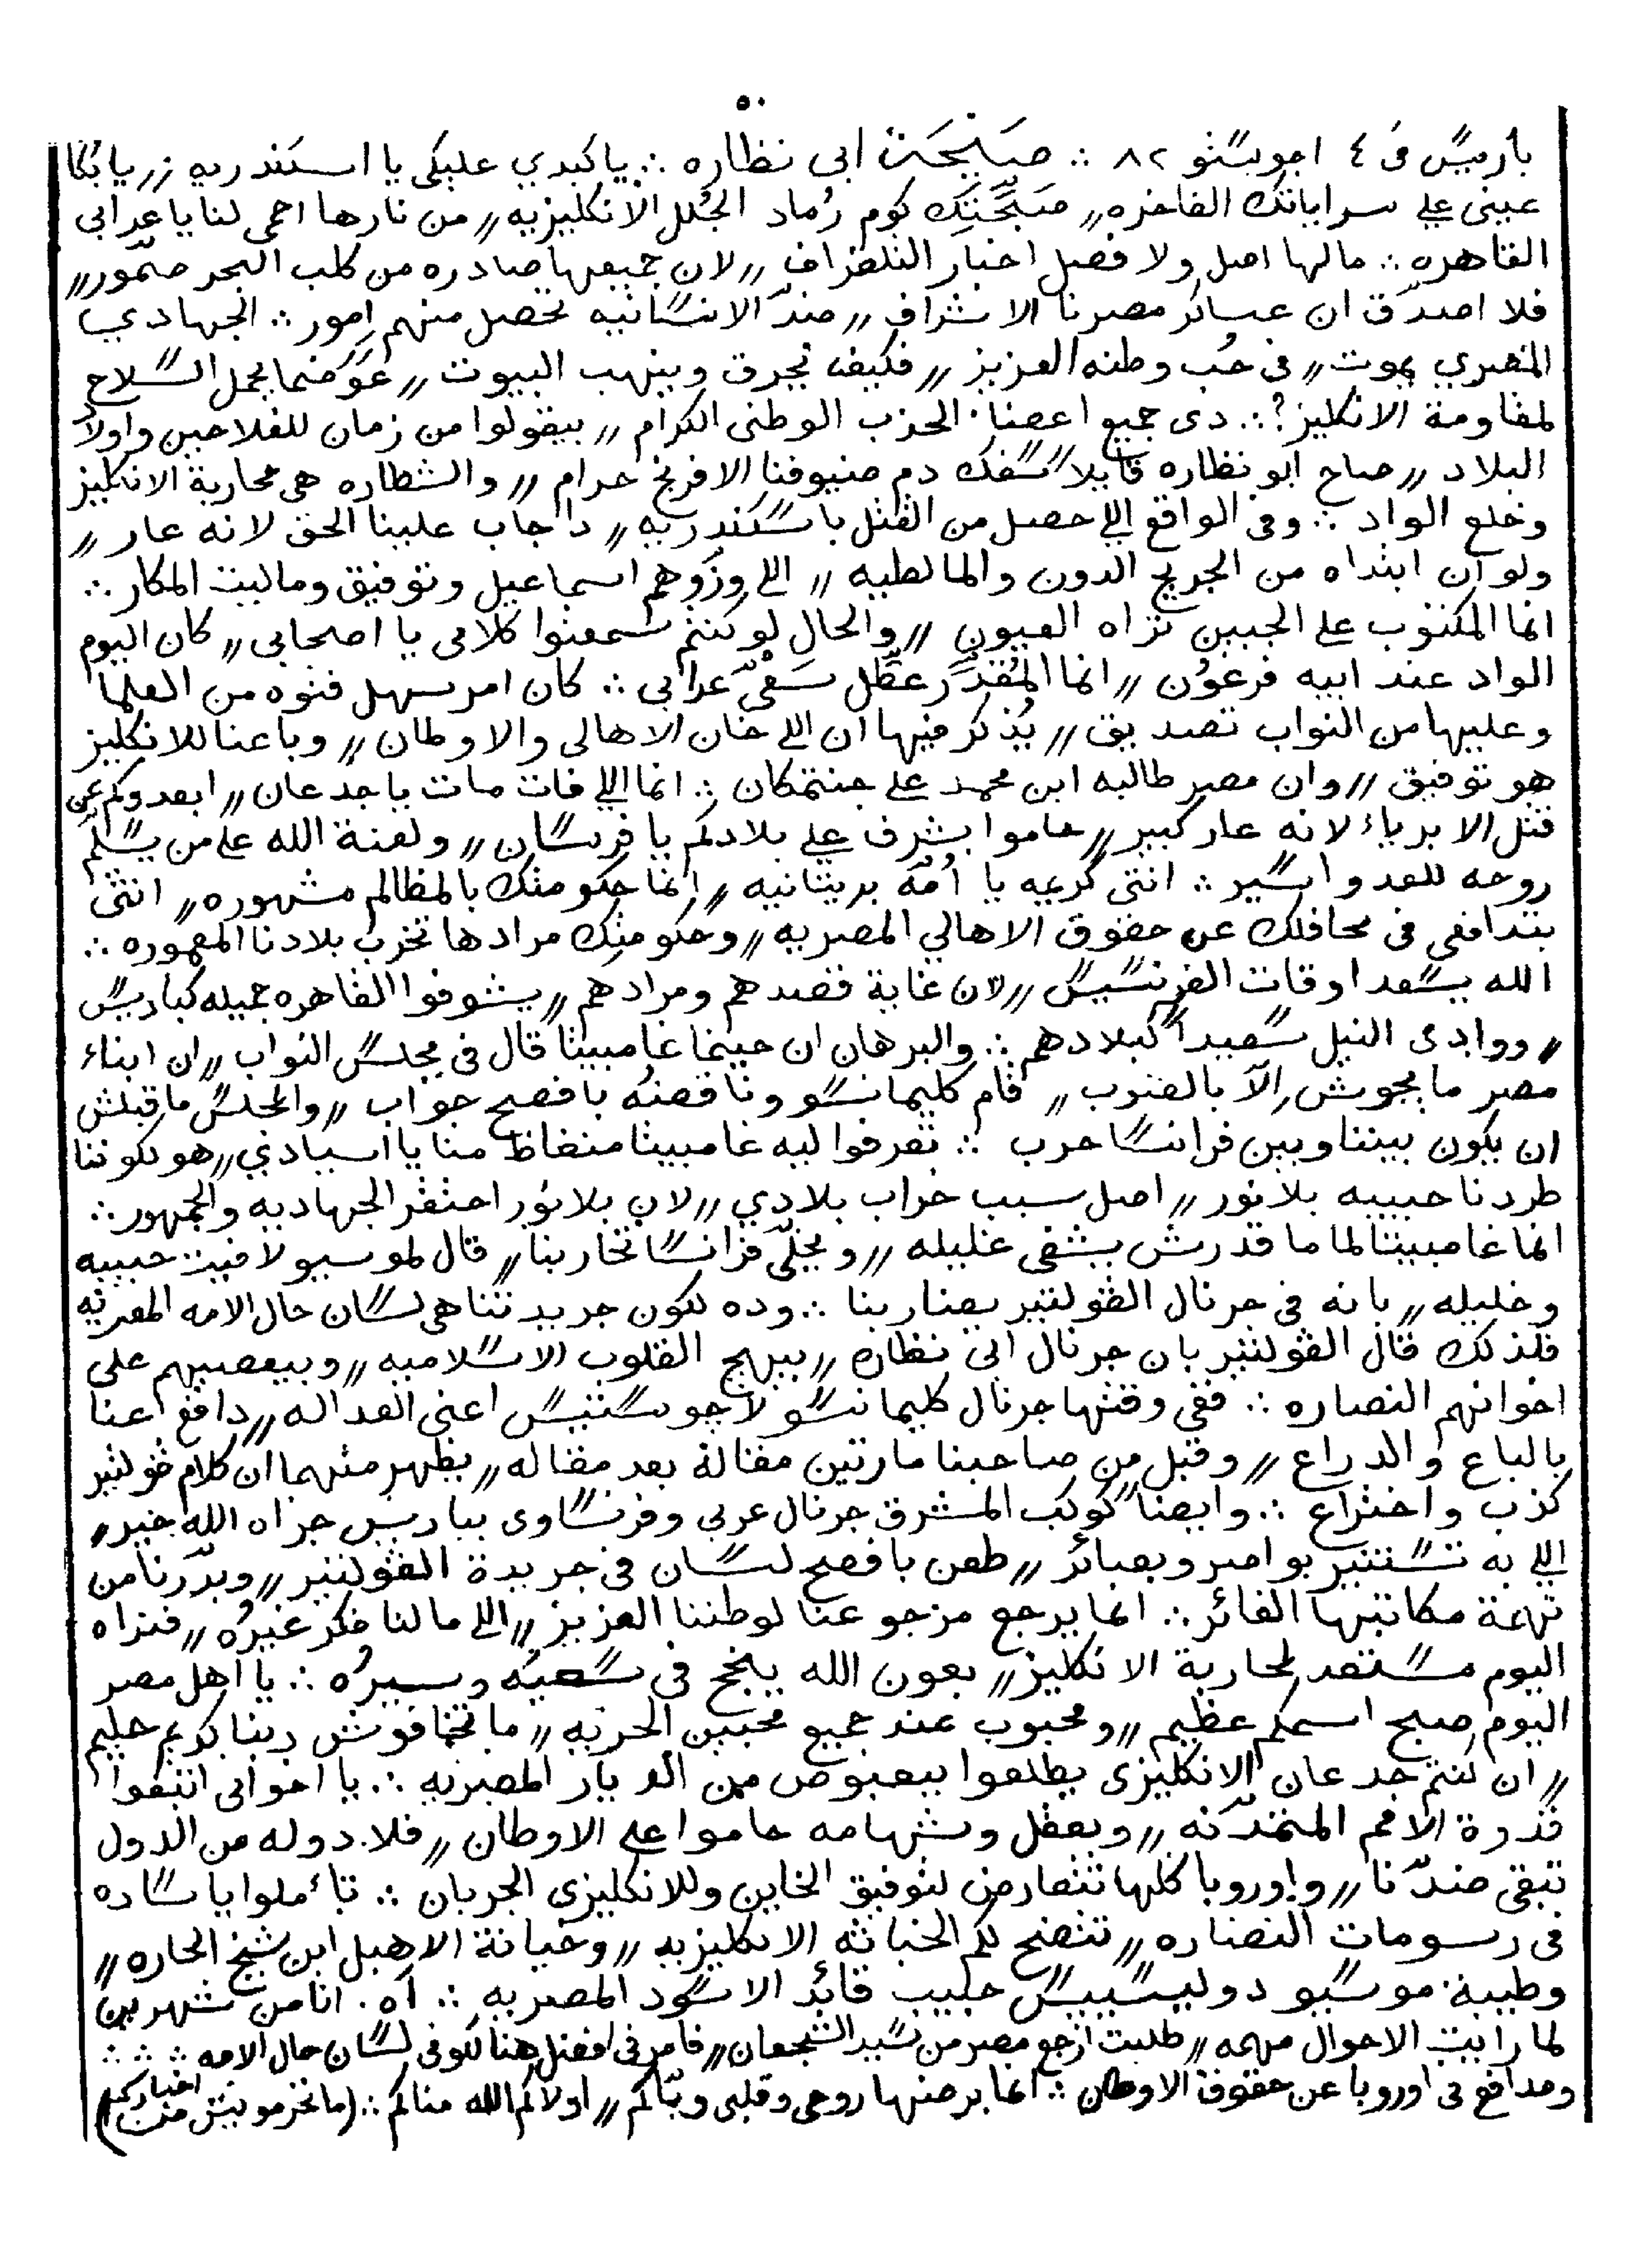 ٥٠
باريس فى ٤ اجوستو ٨٢ ∴ صَبَحِت ابى نظاره ∴ يا كبدي عليكى يا اسكندريه // يا بُكا
عينى على سراياتك الفاخره // صَبَّحَتَك كوم رُماد الجُلل الانكليزيه // من نارها احمى لنا يا عرابى
القاهره ∴ مالها اصل ولا فصل اخبار التلغراف // لان جميعها صادره من كلب البحر صمّور //
فلا اصدّق ان عساكر مصرنا الاشراف // ضدّ الانسانيه تحصل منهم امور ∴ الجهادي
المصري يموت // فى حُب وطنه العزيز // فكيف يحرق وينهب البيوت // عَوَضما يحمل السلاح
لمقاومة الانكليز؟ ∴ دى جميع اعضا الحزب الوطنى الكرام // بيقولوا من زمان للفلاحين واولاد
البلاد // صاح ابو نظاره قايلاً سفك دم ضيوفنا الافرنج حرام // والشطاره هى محاربة الانكليز
وخلع الواد ∴ وفى الواقع اللى حصل من القتل باسكندريه // دا جاب علينا الحق لانه عار //
ولو ان ابتداه من الجريج الدون والمالطيه // اللى وزّوهم اسماعيل وتوفيق وماليت المكار ∴
انما المكتوب على الجبين تراه العيون // والحال لو كنتم سمعتوا كلامى يا اصحابى // كان اليوم
الواد عند ابيه فرعَون // انما المُقدَّر عطّل سَعْىّ عرابى ∴ كان امر سهل فتوه من العلما
وعليها من النواب تصديق // يُذكر فيها ان اللى خان الاهالى والاوطان // وباعنا للانكليز
هو توفيق // وان مصر طالبه ابن محمد على جنتمكان ∴ انما اللى فات مات يا جدعان // ابعدوكم عن
قتل الابرياء لانه عار كبير // حاموا بشرف على بلادكم يا فرسان // ولعنة الله على من يسلّم
روحه للعدو اسير ∴ انتى كريمه يا أمّة بريتانيه // انما حكومتك بالمظالم مشهوره // انتى
بتدافعى فى محافلك عن حقوق الاهالي المصريه // وحكومتك مرادها تخرب بلادنا المعموره ∴
الله يسعد اوقات الفرنسيس // لان غاية قصدهم ومرادهم // يشوفوا القاهره جميله كباريس
// ووادى النيل سعيداً كبلادهم ∴ والبرهان ان حينما غامبيتا قال فى مجلس النواب // ان ابناء
مصر ما يجوش إلاّ بالضرب // قام كليمانسو وناقضه بافصح جواب // والمجلس ما قبلش
ان يكون بيننا وبين فرانسا حرب ∴ تعرفوا ليه غامبيتا منغاظ منا يا اسيادي // هو لكوننا
طردنا حبيبه بلانور // اصل سبب خراب بلادي // لان بلانور احتقر الجهاديه والجمهور ∴
انما غامبيتا لما ما قدرش يشفى غليله // ويخلّى فرانسا تحاربنا // قال لموسيو لافيت حبيبه
وخليله // بانه فى جرنال الڤولتير يضاربنا ∴ وده لكون جريدتنا هى لسان حال الامه المصريه
فلذلك قال الڤولتير بان جرنال ابى نظاره // بيهيج القلوب الاسلاميه // وبيعصيهم على
اخوانهم النصاره ∴ ففى وقتها جرنال كليمانسو لاجوستيس اعنى العداله // دافع عنا
بالباع والدراع // وقبل من صاحبنا مارتين مقالة بعد مقاله // يظهر منهما ان كلام ڤولتير
كذب واختراع ∴ وايضاً كوكب المشرق جرنال عربى وفرنساوى بباريس جزاه الله خير //
اللى به تستنير بواصر وبصائر // طعن بافصح لسان فى جريدة الڤولتير // وبدّرنا من
تهمة مكاتبها الفائر ∴ انما يرجع مرجوعنا لوطننا العزيز // اللى مالنا فكر غيره // فتراه
اليوم مستعد لمحاربة الانكليز // بعون الله ينجح فى سعيه وسيره ∴ يا اهل مصر
اليوم صبح اسمكم عظيم // ومحبوب عند جميع محبين الحريه // ما تخافوش ربنا كريم حليم
// ان كنتم جدعان الانكليزى يطلعوا بيعبوص من الديار المصريه ∴ يا اخوانى اتبعوا
قدوة الامم المتمدّنه // وبعقل وشهامه حاموا على الاوطان // فلا دوله من الدول
تبقى ضدّنا // واوروبا كلها تتعارض لتوفيق الخاين وللانكليزى الجربان ∴ تأملوا يا ساده
فى رسومات النضاره // تتضح لكم الخباثه الانكليزيه // وخيانة الاهبل ابن شيخ الحاره //
وطيبة موسيو دوليسيبس حبيب قائد الاسود المصريه ∴ اه. انا من شهرين
لما رايت الاحوال مهمه // طلبت ارجع مصر من سيد الشجعان // فامرنى افضل هنا لكونى لسان حال الامه ∴ ∴ ∴
ومدافع فى اوروبا عن حقوق الاوطان ∴ انما برضها روحى وقلبى وياكم // اولاكم الله مناكم ∴ (ما تحرمونيش من اخباركم)